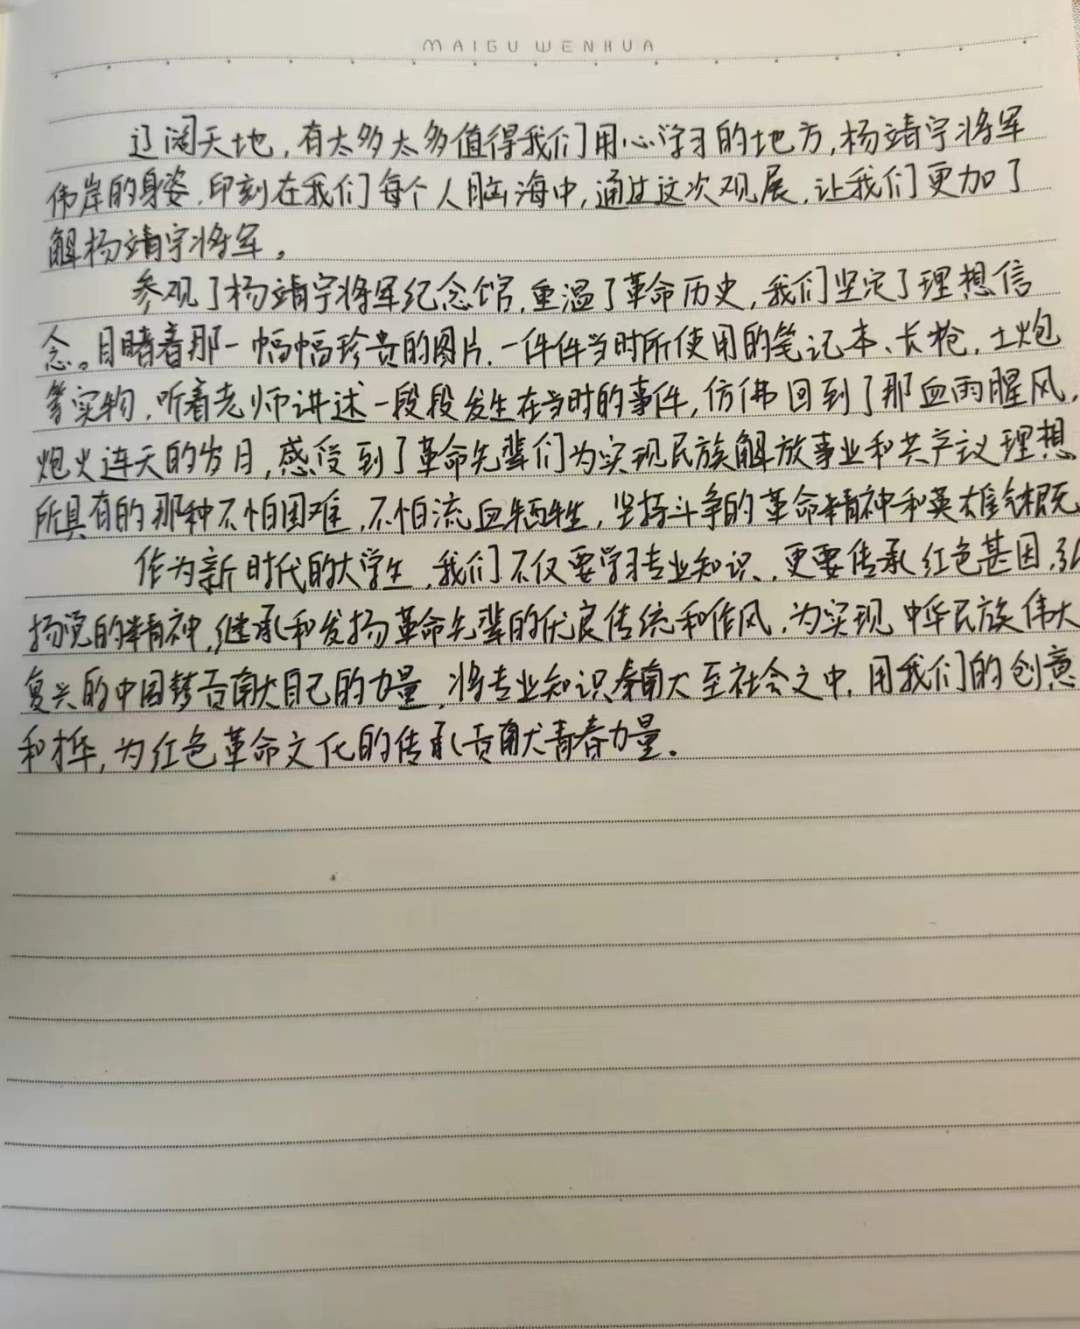 MAIGU WENHUA
辽阔天地，有太多太多值得我们用心学习的地方，杨靖宇将军
伟岸的身姿，印刻在我们每个人脑海中，通过这次观展，让我们更加了
解杨靖宇将军。
参观了杨靖宇将军纪念馆，重温了革命历史，我们坚定了理想信
念。目睹着那一幅幅珍贵的图片，一件件当时所使用的笔记本、长枪，土炮
等实物，听着老师讲述一段段发生在当时的事件，仿佛回到了那血雨腥风，
炮火连天的岁月，感受到了革命先辈们为实现民族解放事业和共产主义理想
所具有的那种不怕困难，不怕流血牺牲，坚持斗争的革命精神和英雄气概
作为新时代的大学生，我们不仅要学习专业知识，更要传承红色基因，弘
扬党的精神，继承和发扬革命先辈的优良传统和作风，为实现中华民族伟大
复兴的中国梦贡献自己的力量，将专业知识奉献至社会之中，用我们的创意
和才华，为红色革命文化的传承贡献青春力量。